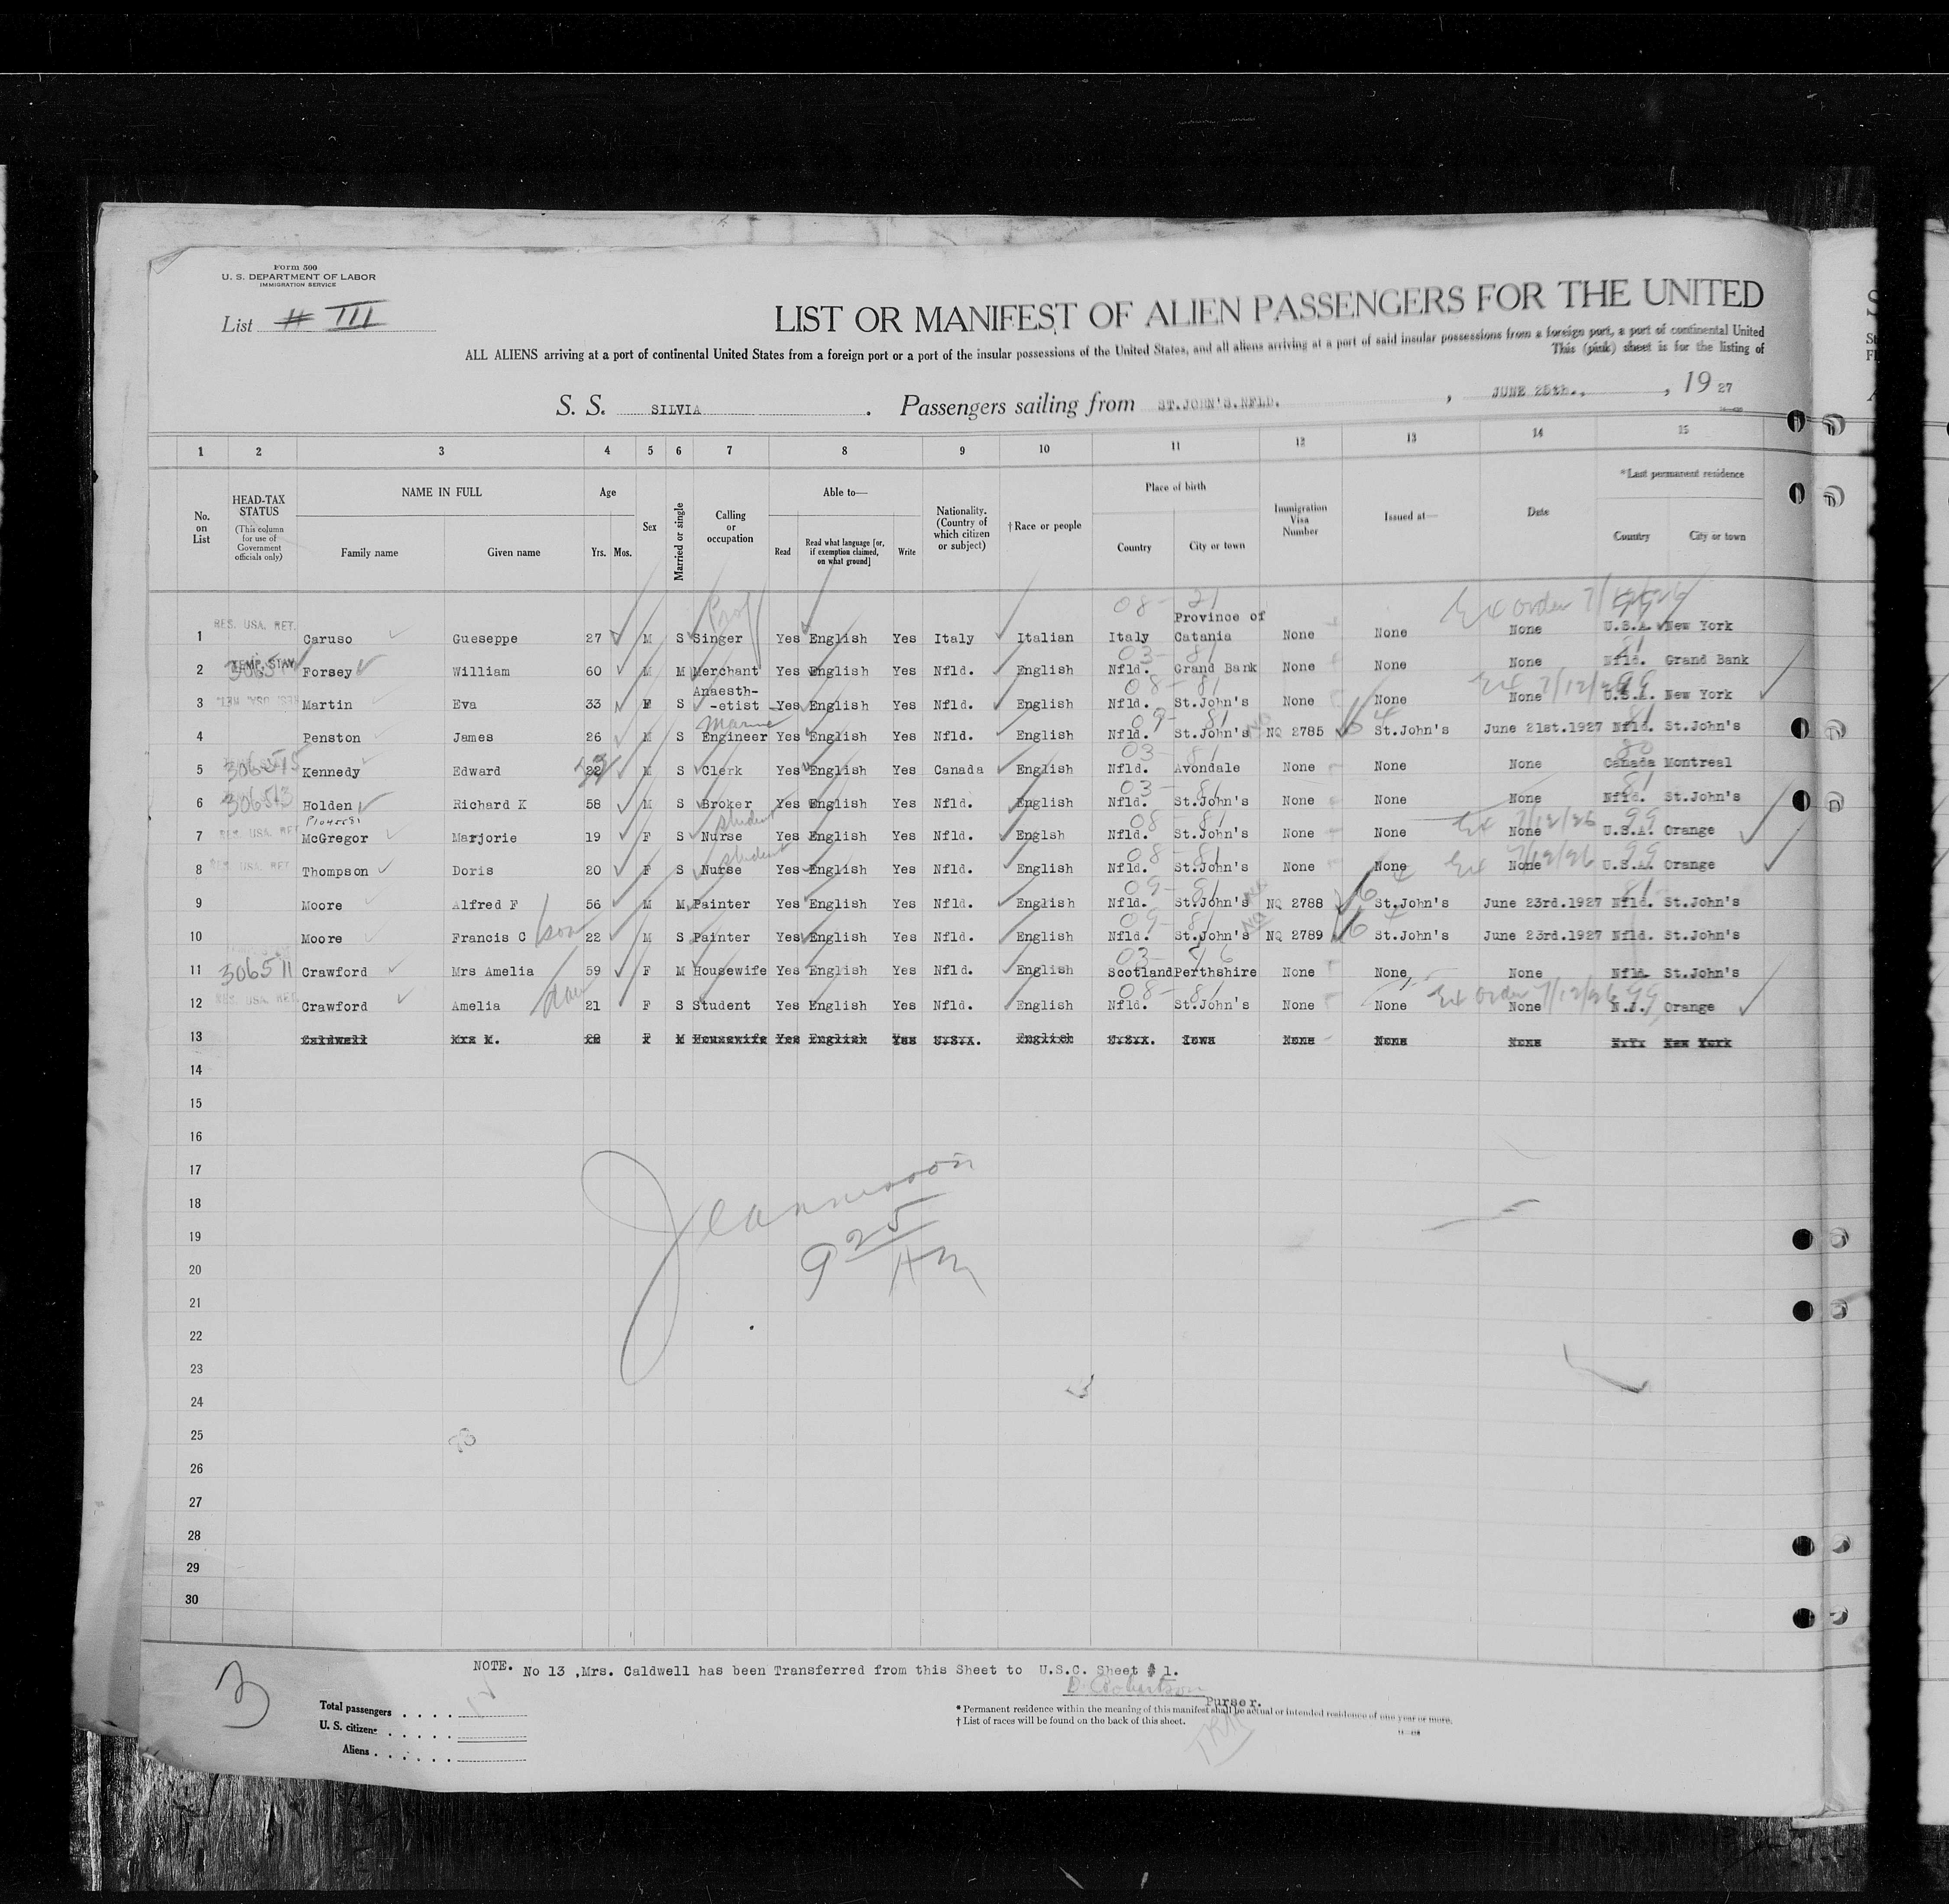 Form 500
U. S. DEPARTMENT OF LABOR
IMMIGRATION SERVICE
List # III
LIST OR MANIFEST OF ALIEN PASSENGERS FOR THE UNITED
ALL ALIENS arriving at a port of continental United States from a foreign port or a port of the insular possessions of the United States, and all aliens arriving at a port of said insular possessions from a foreign port, a port of continental United
This (pink) sheet is for the listing of
S. S. SILVIA . Passengers sailing from ST.JOHN'S.NFLD. , JUNE 25th., , 19 27
1 2 3 4 5 6 7 8 9 10 11 12 13 14 15
No. on List
HEAD-TAX STATUS (This column for use of Government officials only)
NAME IN FULL
Family name Given name
Age
Yrs. Mos.
Sex
Married or single
Calling or occupation
Able to—
Read Read what language [or, if exemption claimed, on what ground] Write
Nationality. (Country of which citizen or subject)
† Race or people
Place of birth
Country City or town
Immigration Visa Number
Issued at—
Date
* Last permanent residence
Country City or town
08- 21 Ex Order 7/12/26 99
Prof
RES. USA. RET. Province of
1 Caruso Gueseppe 27 M S Singer Yes English Yes Italy Italian Italy Catania None None None U.S.A. New York
03- 81
TEMP. STAY
2 Forsey William 60 M M Merchant Yes English Yes Nfld. English Nfld. Grand Bank None None None Nfld. Grand Bank
08- 81 Ex 7/12/26 99
3 Martin Eva 33 F S Anaesth- -etist Yes English Yes Nfld. English Nfld. St.John's None None None U.S.A. New York
Marine 09- 81
4 Penston James 26 M S Engineer Yes English Yes Nfld. English Nfld. St.John's NQ 2785 St.John's June 21st.1927 Nfld. St.John's
03- 81
306515
5 Kennedy Edward 22 M S Clerk Yes English Yes Canada English Nfld. Avondale None None None Canada Montreal
03- 81
306513
6 Holden Richard K 58 M S Broker Yes English Yes Nfld. English Nfld. St.John's None None None Nfld. St.John's
student 08- 81 Ex 7/12/26 99
RES. USA. RET
7 McGregor Marjorie 19 F S Nurse Yes English Yes Nfld. Englsh Nfld. St.John's None None None U.S.A. Orange
student 08- 81 Ex 7/12/26 99
RES. USA. RET.
8 Thompson Doris 20 F S Nurse Yes English Yes Nfld. English Nfld. St.John's None None None U.S.A. Orange
09- 81
9 Moore Alfred F 56 M M Painter Yes English Yes Nfld. English Nfld. St.John's NQ 2788 St.John's June 23rd.1927 Nfld. St.John's
09- 81
10 Moore Francis C son 22 M S Painter Yes English Yes Nfld. English Nfld. St.John's NQ 2789 St.John's June 23rd.1927 Nfld. St.John's
03- 76
306511
11 Crawford Mrs Amelia 59 F M Housewife Yes English Yes Nfld. English Scotland Perthshire None None None Nfld. St.John's
08- 81 Ex Order 7/12/26 99
RES. USA. RET.
12 Crawford Amelia dau 21 F S Student Yes English Yes Nfld. English Nfld. St.John's None None None N.J. Orange
13 Caldwell Mrs M. 28 F M Housewife Yes English Yes U.S.A. English U.S.A. Iowa None None None N.Y. New York
14
15
16
17
18
19
20
21
22
23
24
25
26
27
28
29
30
9 25 AM
3
NOTE. No 13 ,Mrs. Caldwell has been Transferred from this Sheet to U.S.C. Sheet # 1.
Purser.
Total passengers . . . . 12
U. S. citizens . . . . .
Aliens . . . . . .
* Permanent residence within the meaning of this manifest shall be actual or intended residence of one year or more.
† List of races will be found on the back of this sheet.